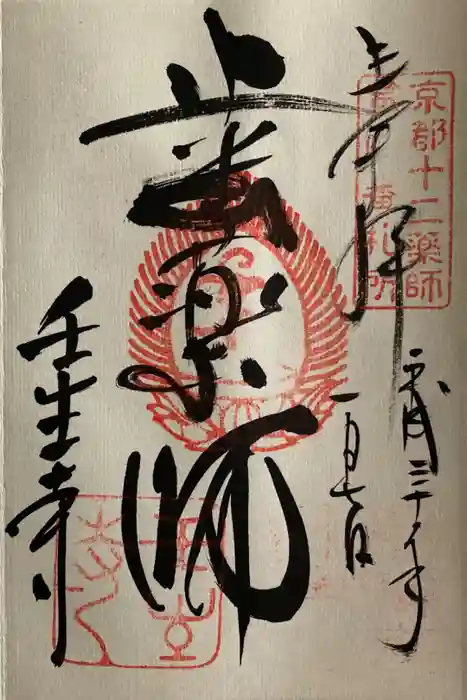 京都十二薬師
第四番札所
奉拝
平成三十年
一月七日
歯薬師
壬生寺